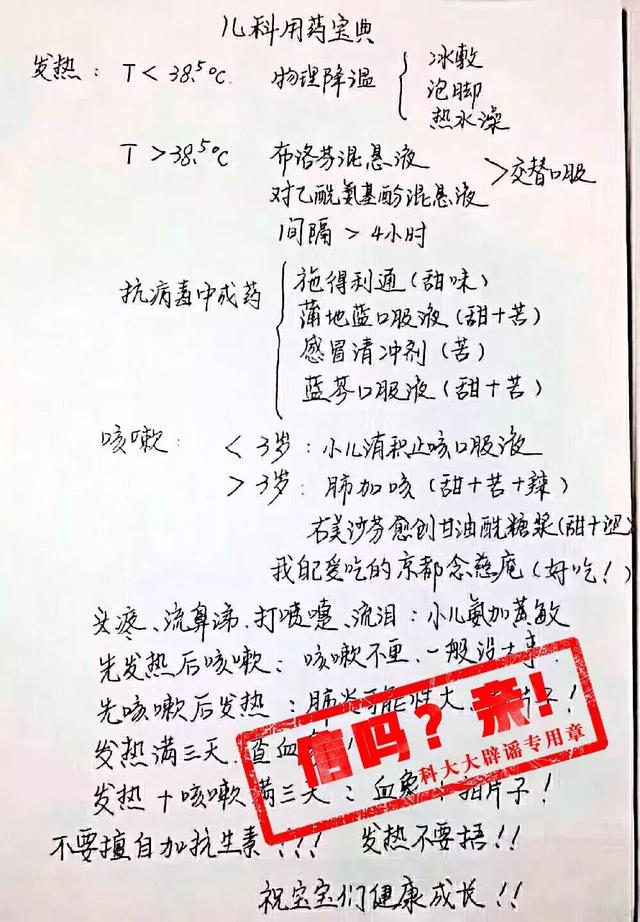 儿科用药宝典
发热: T < 38.5℃ 物理降温 冰敷
泡脚
热水澡
T > 38.5℃ 布洛芬混悬液
对乙酰氨基酚混悬液 > 交替口服
间隔 > 4小时
抗病毒中成药 施得利通(甜味)
蒲地蓝口服液(甜+苦)
感冒清冲剂(苦)
蓝芩口服液(甜+苦)
咳嗽: < 3岁: 小儿消积止咳口服液
> 3岁: 肺加咳(甜+苦+辣)
右美沙芬愈创甘油酰糖浆(甜+
我自己爱吃的京都念慈庵(好吃!)
头疼、流鼻涕、打喷嚏、流泪: 小儿氨加黄敏
先发热后咳嗽: 咳嗽不重、一般没
先咳嗽后发热: 肺炎可能性大、片子!
发热满三天、查血
发热+咳嗽满三天: 血象 拍片子!
不要擅自加抗生素!!! 发热不要捂!!
祝宝宝们健康成长!!
信吗?亲!
科大大辟谣专用章